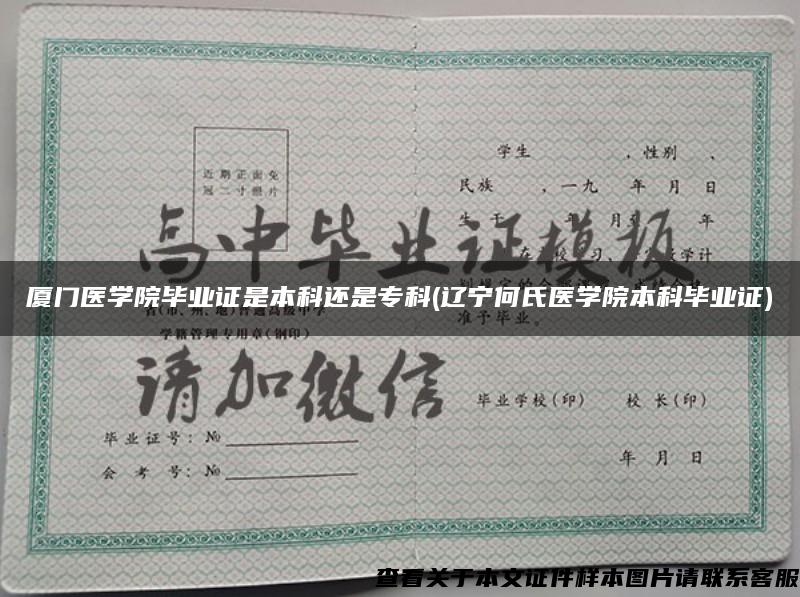 学生 ，性别 、
近期正面免
冠二寸照片
民族 ，一九 年 月 日
高中毕业证模板
厦门医学院毕业证是本科还是专科(辽宁何氏医学院本科毕业证)
准予毕业。
学籍管理专用章(钢印)
请加微信
毕业学校(印) 校 长(印)
毕业证号：№
会 考 号：№
年 月 日
查看关于本文证件样本图片请联系客服